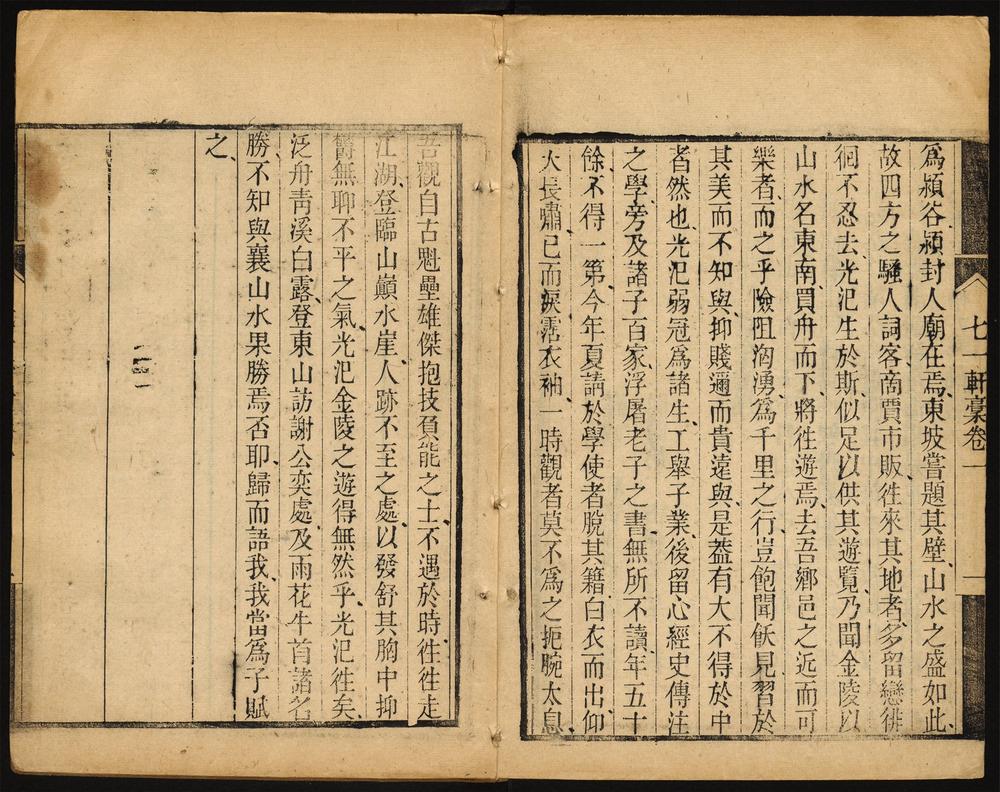 七一軒藁卷一
一
爲潁谷潁封人廟在焉東坡嘗題其壁山水之盛如此
故四方之騷人詞客商賈市販徃來其地者多留戀徘
徊不忍去光汜生於斯似足以供其遊覽乃聞金陵以
山水名東南買舟而下將徃遊焉去吾鄉邑之近而可
樂者而之乎險阻洶湧爲千里之行豈飽聞飫見習於
其美而不知與抑賤邇而貴遠與是葢有大不得於中
者然也光汜弱冠爲諸生工舉子業後留心經史傳注
之學旁及諸子百家浮屠老子之書無所不讀年五十
餘不得一第今年夏請於學使者脫其籍白衣而出仰
天長嘯已而淚霑衣袖一時觀者莫不爲之扼腕太息
吾觀自古魁壘雄傑抱技負能之士不遇於時徃徃走
江湖登臨山巔水崖人跡不至之處以發舒其胸中抑
鬱無聊不平之氣光汜金陵之遊得無然乎光汜徃矣
泛舟靑溪白露登東山訪謝公奕處及雨花牛首諸名
勝不知與襄山水果勝焉否耶歸而語我我當爲子賦
之